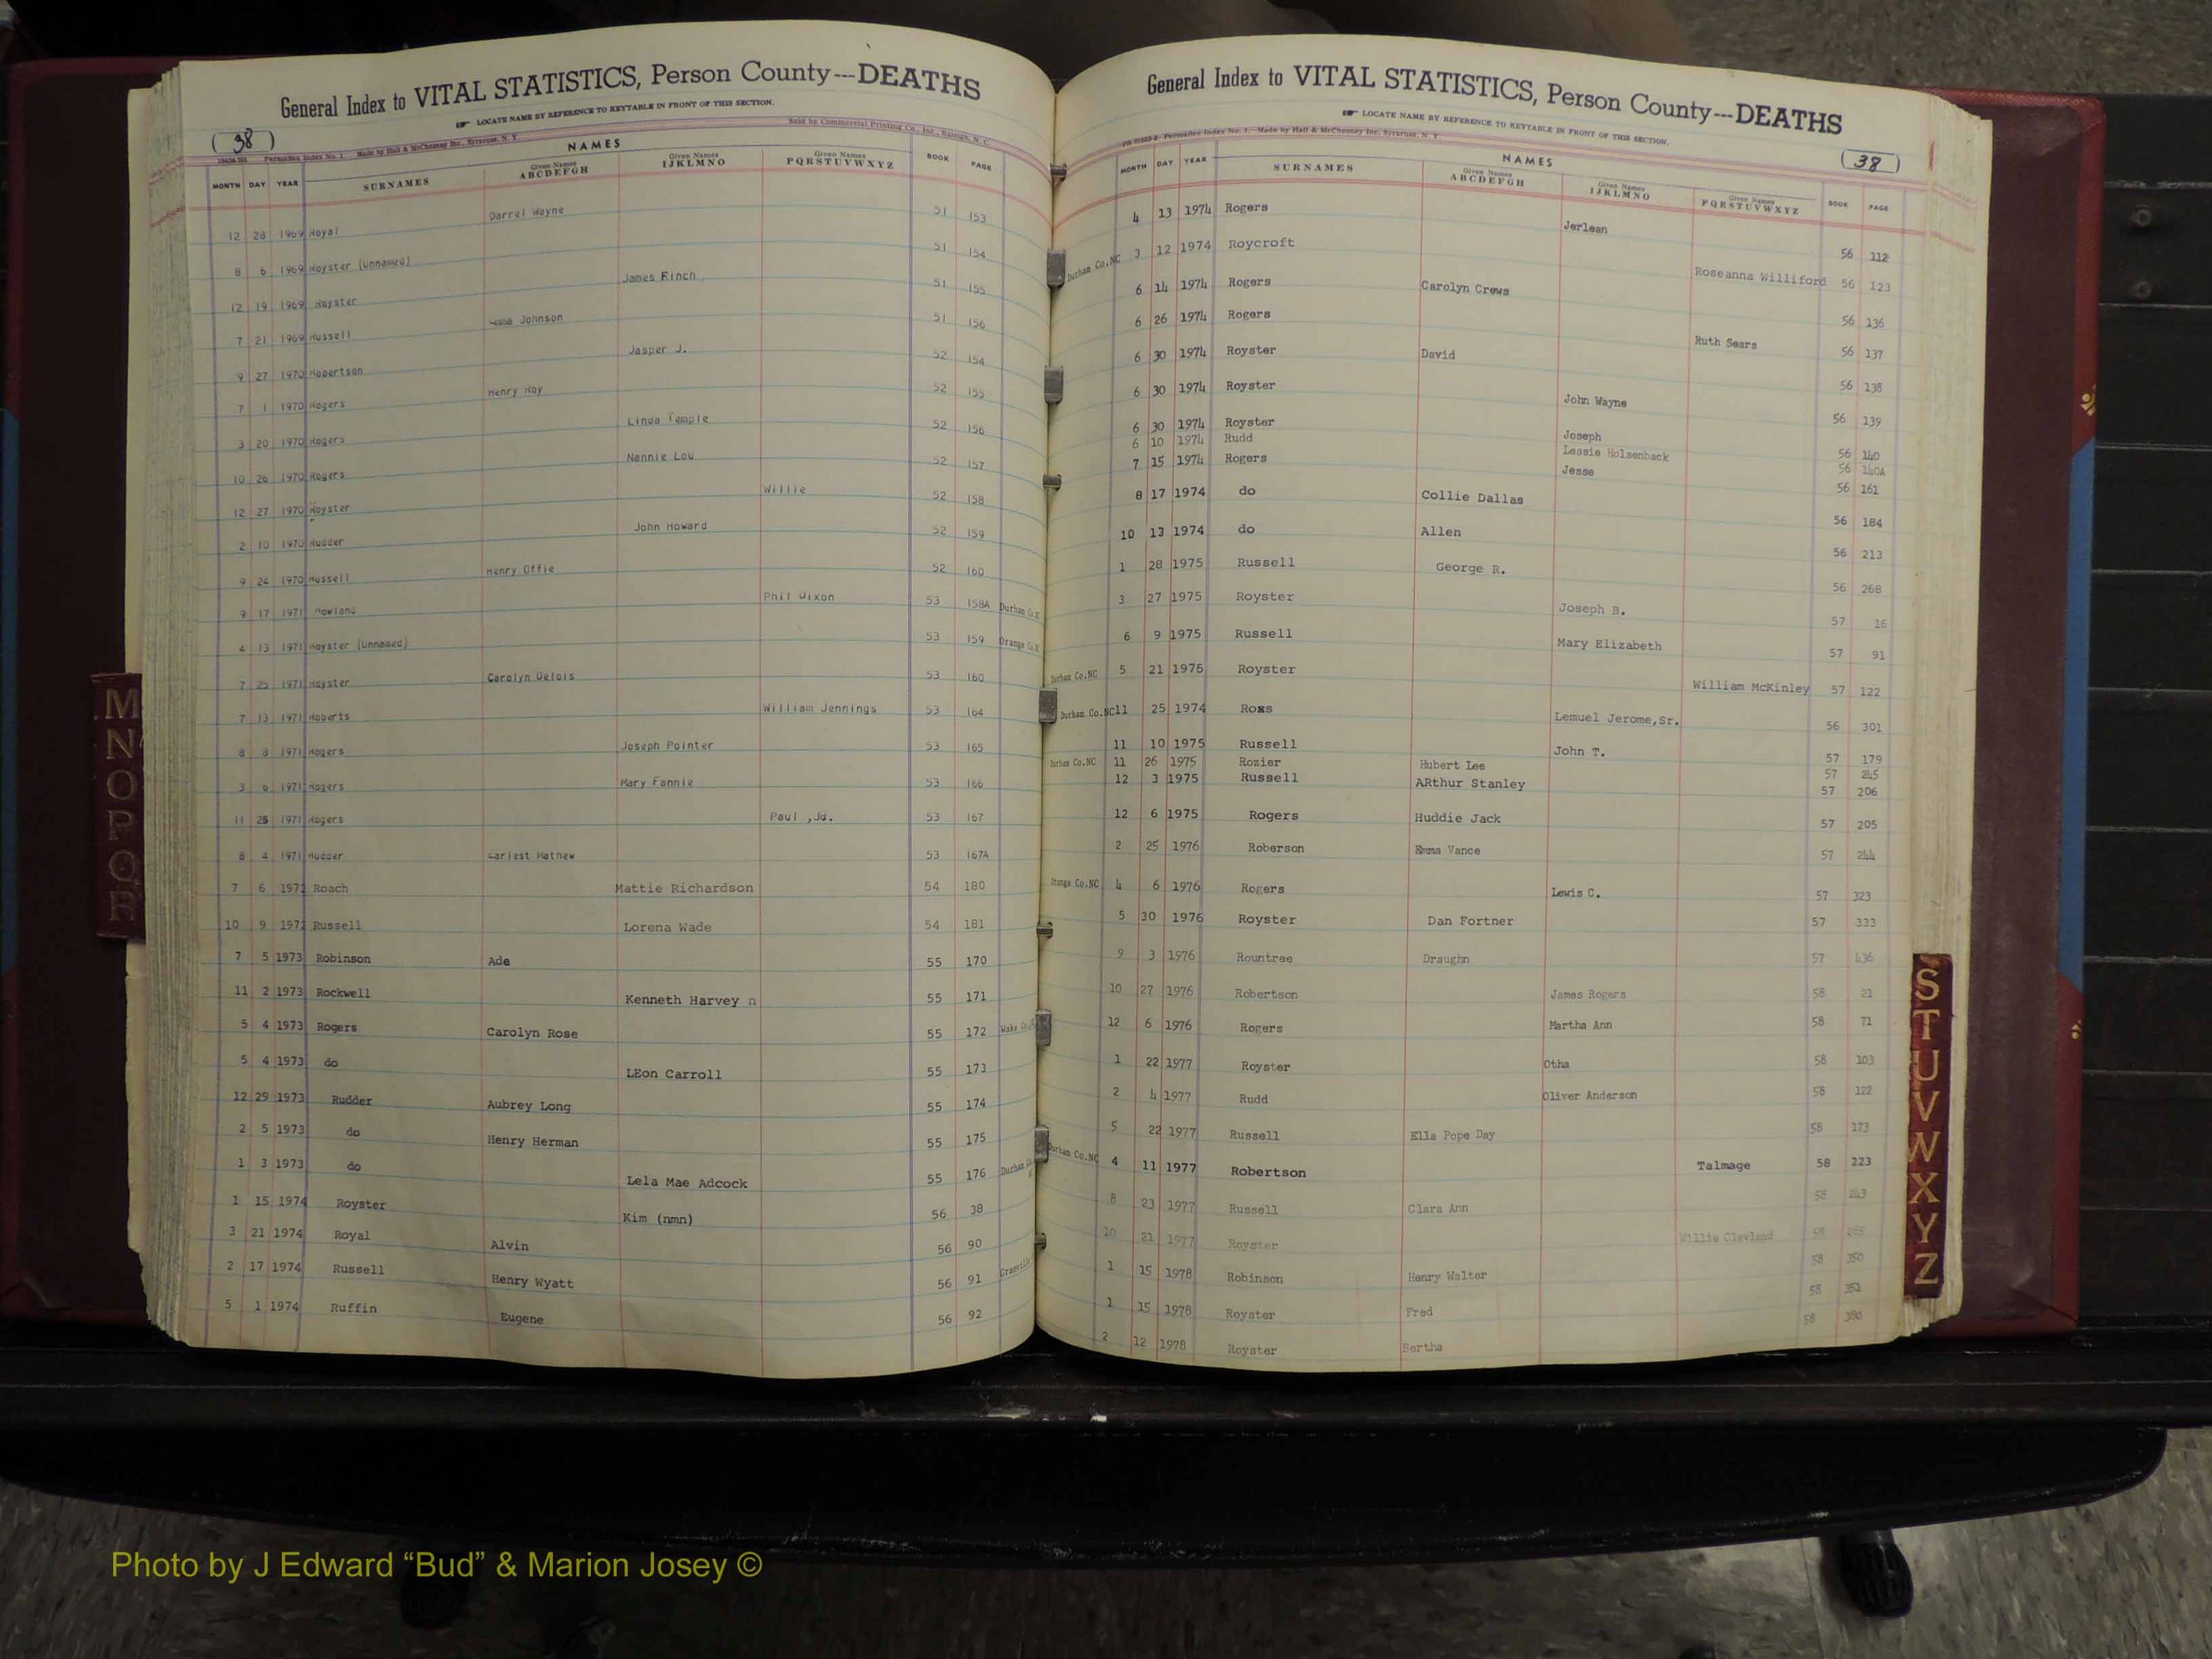 General Index to VITAL STATISTICS, Person County---DEATHS
LOCATE NAME BY REFERENCE TO KEYTABLE IN FRONT OF THIS SECTION.
(38)
Permaflex Index No. 1. Made by Hall & McChesney Inc., Syracuse, N. Y. Sold by Commercial Printing Co., Inc., Raleigh, N. C.
NAMES
MONTH DAY YEAR SURNAMES Given Names ABCDEFGH Given Names IJKLMNO Given Names PQRSTUVWXYZ BOOK PAGE
12 28 1969 Royal Darrel Wayne 51 153
8 6 1969 Royster (Unnamed) 51 154
12 19 1969 Royster James Finch 51 155
7 21 1969 Russell Johnson 51 156
9 27 1970 Robertson Jasper J. 52 154
7 1 1970 Rogers Henry Roy 52 155
3 20 1970 Rogers Linda Temple 52 156
10 26 1970 Rogers Nannie Lou 52 157
12 27 1970 Royster Willie 52 158
2 10 1970 Rudder John Howard 52 159
9 24 1970 Russell Henry Offie 52 160
9 17 1971 Rowland Phil Dixon 53 158A Durham Co.
4 13 1971 Royster (Unnamed) 53 159 Orange Co.
7 25 1971 Royster Carolyn Delois 53 160
7 13 1971 Roberts William Jennings 53 164
8 8 1971 Rogers Joseph Pointer 53 165
3 6 1971 Rogers Mary Fannie 53 166
11 25 1971 Rogers Paul ,Jd. 53 167
8 4 1971 Rudder Earlest Mathew 53 167A
7 6 1972 Roach Mattie Richardson 54 180
10 9 1972 Russell Lorena Wade 54 181
7 5 1973 Robinson Ade 55 170
11 2 1973 Rockwell Kenneth Harvey n 55 171
5 4 1973 Rogers Carolyn Rose 55 172 Wake Co.
5 4 1973 do LEon Carroll 55 173
12 29 1973 Rudder Aubrey Long 55 174
2 5 1973 do Henry Herman 55 175
1 3 1973 do Lela Mae Adcock 55 176 Durham Co.
1 15 1974 Royster Kim (nmn) 56 38
3 21 1974 Royal Alvin 56 90
2 17 1974 Russell Henry Wyatt 56 91 Granville
5 1 1974 Ruffin Eugene 56 92
General Index to VITAL STATISTICS, Person County---DEATHS
LOCATE NAME BY REFERENCE TO KEYTABLE IN FRONT OF THIS SECTION.
Permaflex-Index No. 1.-Made by Hall & McChesney Inc. Syracuse, N. Y.
(38)
NAMES
MONTH DAY YEAR SURNAMES Given Names ABCDEFGH Given Names IJKLMNO Given Names PQRSTUVWXYZ BOOK PAGE
4 13 1974 Rogers Jerlean 56 112
Durham Co.NC 3 12 1974 Roycroft Roseanna Williford 56 123
6 14 1974 Rogers Carolyn Crews 56 136
6 26 1974 Rogers Ruth Sears 56 137
6 30 1974 Royster David 56 138
6 30 1974 Royster John Wayne 56 139
6 30 1974 Royster Joseph 56 140
6 10 1974 Rudd Lessie Holsenback 56 140A
7 15 1974 Rogers Jesse 56 161
8 17 1974 do Collie Dallas 56 184
10 13 1974 do Allen 56 213
1 28 1975 Russell George R. 56 268
3 27 1975 Royster Joseph B. 57 16
6 9 1975 Russell Mary Elizabeth 57 91
Durham Co.NC 5 21 1975 Royster William McKinley 57 122
Durham Co.NC 11 25 1974 Ross Lemuel Jerome,Sr. 56 301
11 10 1975 Russell John T. 57 179
Durham Co.NC 11 26 1975 Rozier Hubert Lee 57 245
12 3 1975 Russell ARthur Stanley 57 206
12 6 1975 Rogers Huddie Jack 57 205
2 25 1976 Roberson Emma Vance 57 244
Orange Co.NC 4 6 1976 Rogers Lewis C. 57 323
5 30 1976 Royster Dan Fortner 57 333
9 3 1976 Rountree Draughn 57 436
10 27 1976 Robertson James Rogers 58 21
12 6 1976 Rogers Martha Ann 58 71
1 22 1977 Royster Otha 58 103
2 4 1977 Rudd Oliver Anderson 58 122
5 22 1977 Russell Ella Pope Day 58 173
Durham Co.NC 4 11 1977 Robertson Talmage 58 223
8 23 1977 Russell Clara Ann 58 243
10 21 1977 Royster Willie Clevland 58 269
1 15 1978 Robinson Henry Walter 58 350
1 15 1978 Royster Fred 58 351
2 12 1978 Royster Bertha 58 380
M
N
O
P
Q
R
S
T
U
V
W
X
Y
Z
Photo by J Edward “Bud” & Marion Josey ©